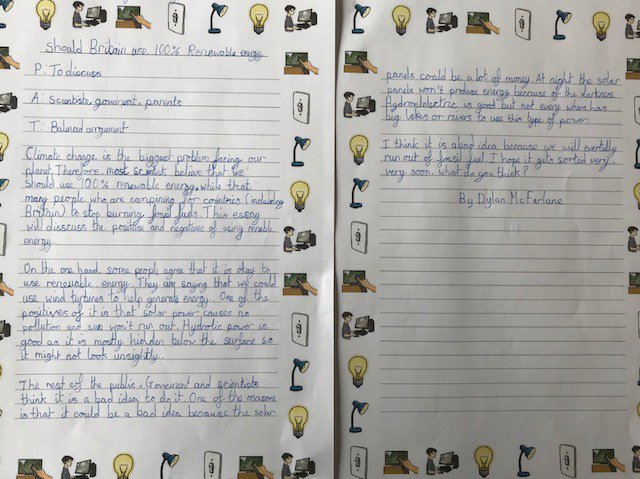 Should Britain use 100% Renewable energy
P: To discuss
A: scientists, goverment, parents
T: Balanced argument
Climate change is the biggest problem facing our
planet. Therefore, most scientist believe that we
should use 100% renewable energy, while that
many people who are campining for countries (including
Britain) to stop burning fosil fuels. This essay
will disscuss the positives and negatives of using renable
energy.
On the one hand, some people agree that it is okay to
use renewable energy. They are saying that we could
use wind turbines to help generate energy. One of the
positives of it is that solar power causes no
pollution and sun won't run out. Hydrotic power is
good as it is mostly hidden below the surface so
it might not look unsightly.
The rest of the public, Goverment and scientists
think it is a bad idea to do it. One of the reasons
is that it could be a bad idea because the solar
panels could be a lot of money. At night the solar
panels won't produce energy because of the darkness.
Hydroelectric is good but not every where has
big lakes or rivers to use this type of power.
I think it is a bad idea because we will eventully
run out of fossil fuel. I hope it gets sorted very,
very soon. What do you think?
By Dylan McFarlane